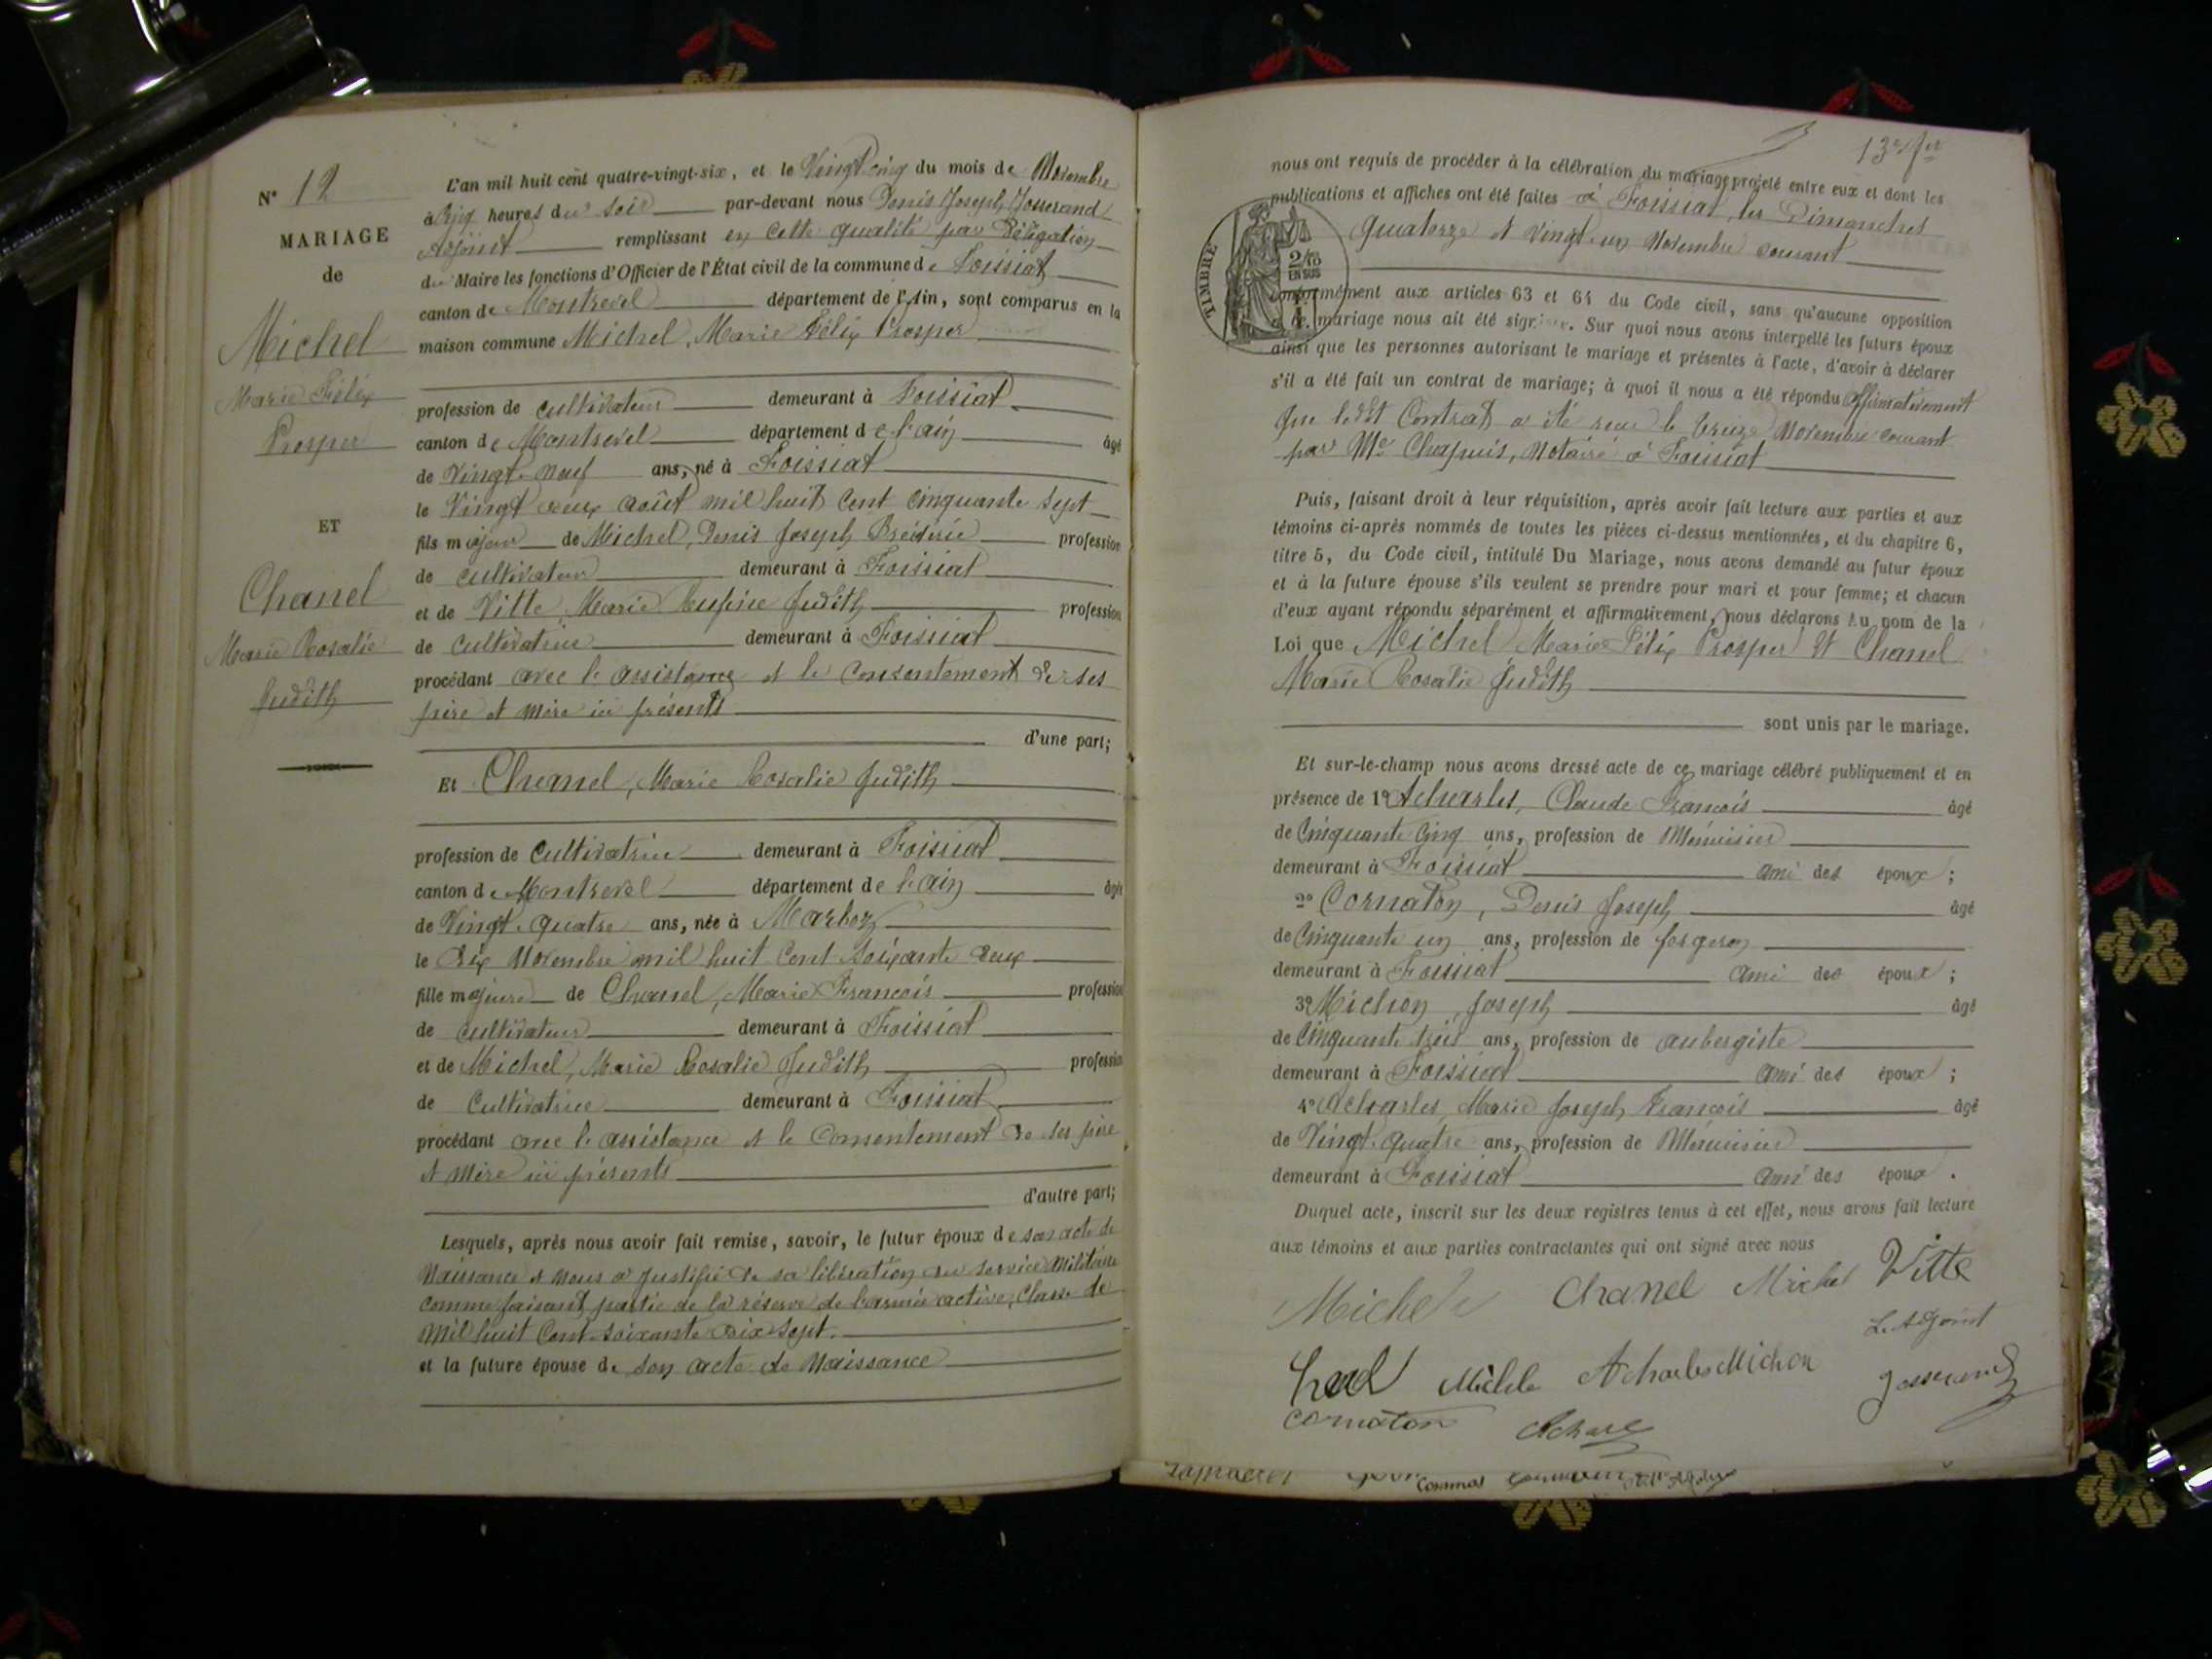 N° 12
MARIAGE
de
Michel
Marie Félix
Prosper
ET
Chanel
Marie Rosalie
Judith
L'an mil huit cent quatre-vingt-six, et le Vingt cinq du mois de Novembre
à Cinq heures du soir par-devant nous Denis Joseph Josserand
Adjoint remplissant en cette qualité par Délégation
du Maire les fonctions d'Officier de l'État civil de la commune de Foissiat
canton de Montrevel département de l'Ain, sont comparus en la
maison commune Michel, Marie Félix Prosper
profession de cultivateur demeurant à Foissiat
canton de Montrevel département de l'ain âgé
de Vingt-neuf ans, né à Foissiat
le Vingt deux août mil huit cent cinquante sept
fils majeur de Michel, Denis Joseph profession
de cultivateur demeurant à Foissiat
et de Vitte, Marie Judith profession
de cultivatrice demeurant à Foissiat
procédant avec l'assistance et le consentement de ses
père et mère ici présents
d'une part;
Et Chanel, Marie Rosalie Judith
profession de cultivatrice demeurant à Foissiat
canton de Montrevel département de l'ain âgée
de Vingt-quatre ans, née à Marboz
le dix Novembre mil huit cent soixante deux
fille majeure de Chanel, Marie François profession
de cultivateur demeurant à Foissiat
et de Michel, Marie Rosalie Judith profession
de cultivatrice demeurant à Foissiat
procédant avec l'assistance et le consentement de ses père
et mère ici présents
d'autre part;
Lesquels, après nous avoir fait remise, savoir, le futur époux de son acte de
Naissance et nous a justifié de sa libération du service militaire
comme faisant partie de la réserve de l'armée active, Classe de
mil huit cent soixante dix sept.
et la future épouse de son acte de Naissance
nous ont requis de procéder à la célébration du mariage projeté entre eux et dont les
publications et affiches ont été faites à Foissiat, les Dimanches
quatorze et vingt-un Novembre courant
TIMBRE
2/10
EN SUS
conformément aux articles 63 et 64 du Code civil, sans qu'aucune opposition
à ce mariage nous ait été signifiée. Sur quoi nous avons interpellé les futurs époux
ainsi que les personnes autorisant le mariage et présentes à l'acte, d'avoir à déclarer
s'il a été fait un contrat de mariage; à quoi il nous a été répondu affirmativement
que ledit Contrat a été reçu le treize Novembre courant
par Me Chapuis, Notaire à Foissiat
Puis, faisant droit à leur réquisition, après avoir fait lecture aux parties et aux
témoins ci-après nommés de toutes les pièces ci-dessus mentionnées, et du chapitre 6,
titre 5, du Code civil, intitulé Du Mariage, nous avons demandé au futur époux
et à la future épouse s'ils veulent se prendre pour mari et pour femme; et chacun
d'eux ayant répondu séparément et affirmativement, nous déclarons au nom de la
Loi que Michel Marie Félix Prosper et Chanel
Marie Rosalie Judith
sont unis par le mariage.
Et sur-le-champ nous avons dressé acte de ce mariage célébré publiquement et en
présence de 1° Acharles, Claude François âgé
de Cinquante Cinq ans, profession de Menuisier
demeurant à Foissiat ami des époux;
2° Cornaton, Denis Joseph âgé
de Cinquante un ans, profession de forgeron
demeurant à Foissiat ami des époux;
3° Michon, Joseph âgé
de Cinquante trois ans, profession de aubergiste
demeurant à Foissiat ami des époux;
4° Acharles, Marie Joseph François âgé
de Vingt-quatre ans, profession de Menuisier
demeurant à Foissiat ami des époux.
Duquel acte, inscrit sur les deux registres tenus à cet effet, nous avons fait lecture
aux témoins et aux parties contractantes qui ont signé avec nous
Michel Chanel Michel Vitte
L'Adjoint
Acharles Michon Josserand
Cornaton